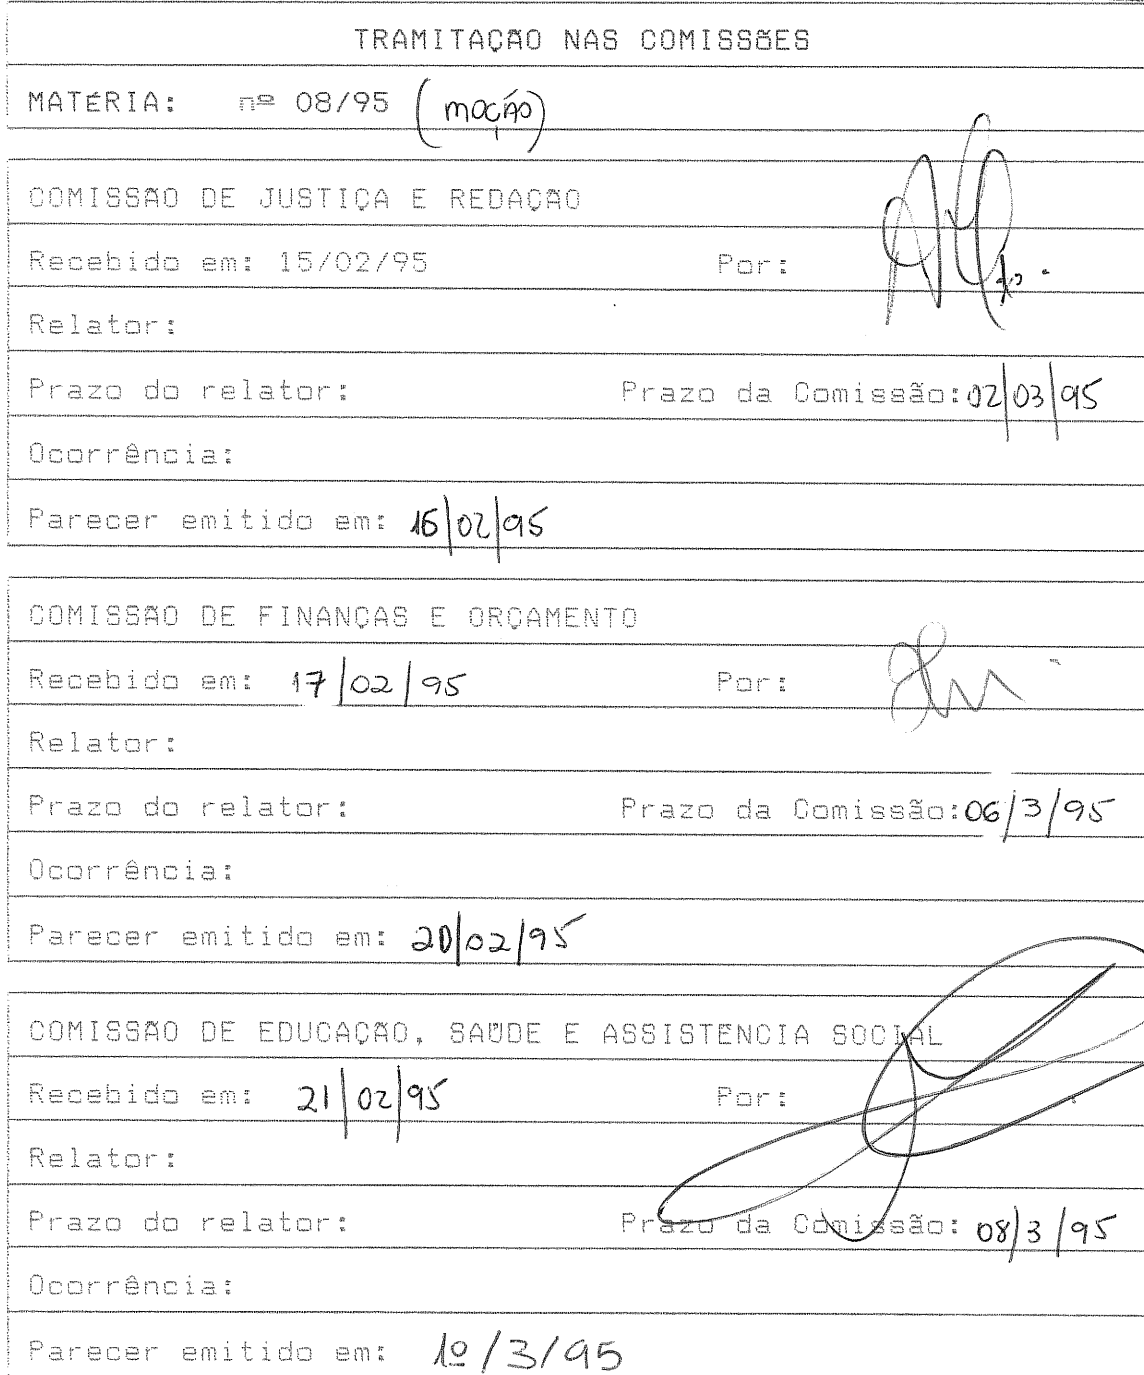 TRAMITAÇÃO NAS COMISSÕES
MATÉRIA: nº 08/95 (moção)
COMISSÃO DE JUSTIÇA E REDAÇÃO
Recebido em: 15/02/95 Por:
Relator:
Prazo do relator: Prazo da Comissão: 02/03/95
Ocorrência:
Parecer emitido em: 16/02/95
COMISSÃO DE FINANÇAS E ORÇAMENTO
Recebido em: 17/02/95 Por:
Relator:
Prazo do relator: Prazo da Comissão: 06/3/95
Ocorrência:
Parecer emitido em: 20/02/95
COMISSÃO DE EDUCAÇÃO, SAÚDE E ASSISTENCIA SOCIAL
Recebido em: 21/02/95 Por:
Relator:
Prazo do relator: Prazo da Comissão: 08/3/95
Ocorrência:
Parecer emitido em: 1º/3/95